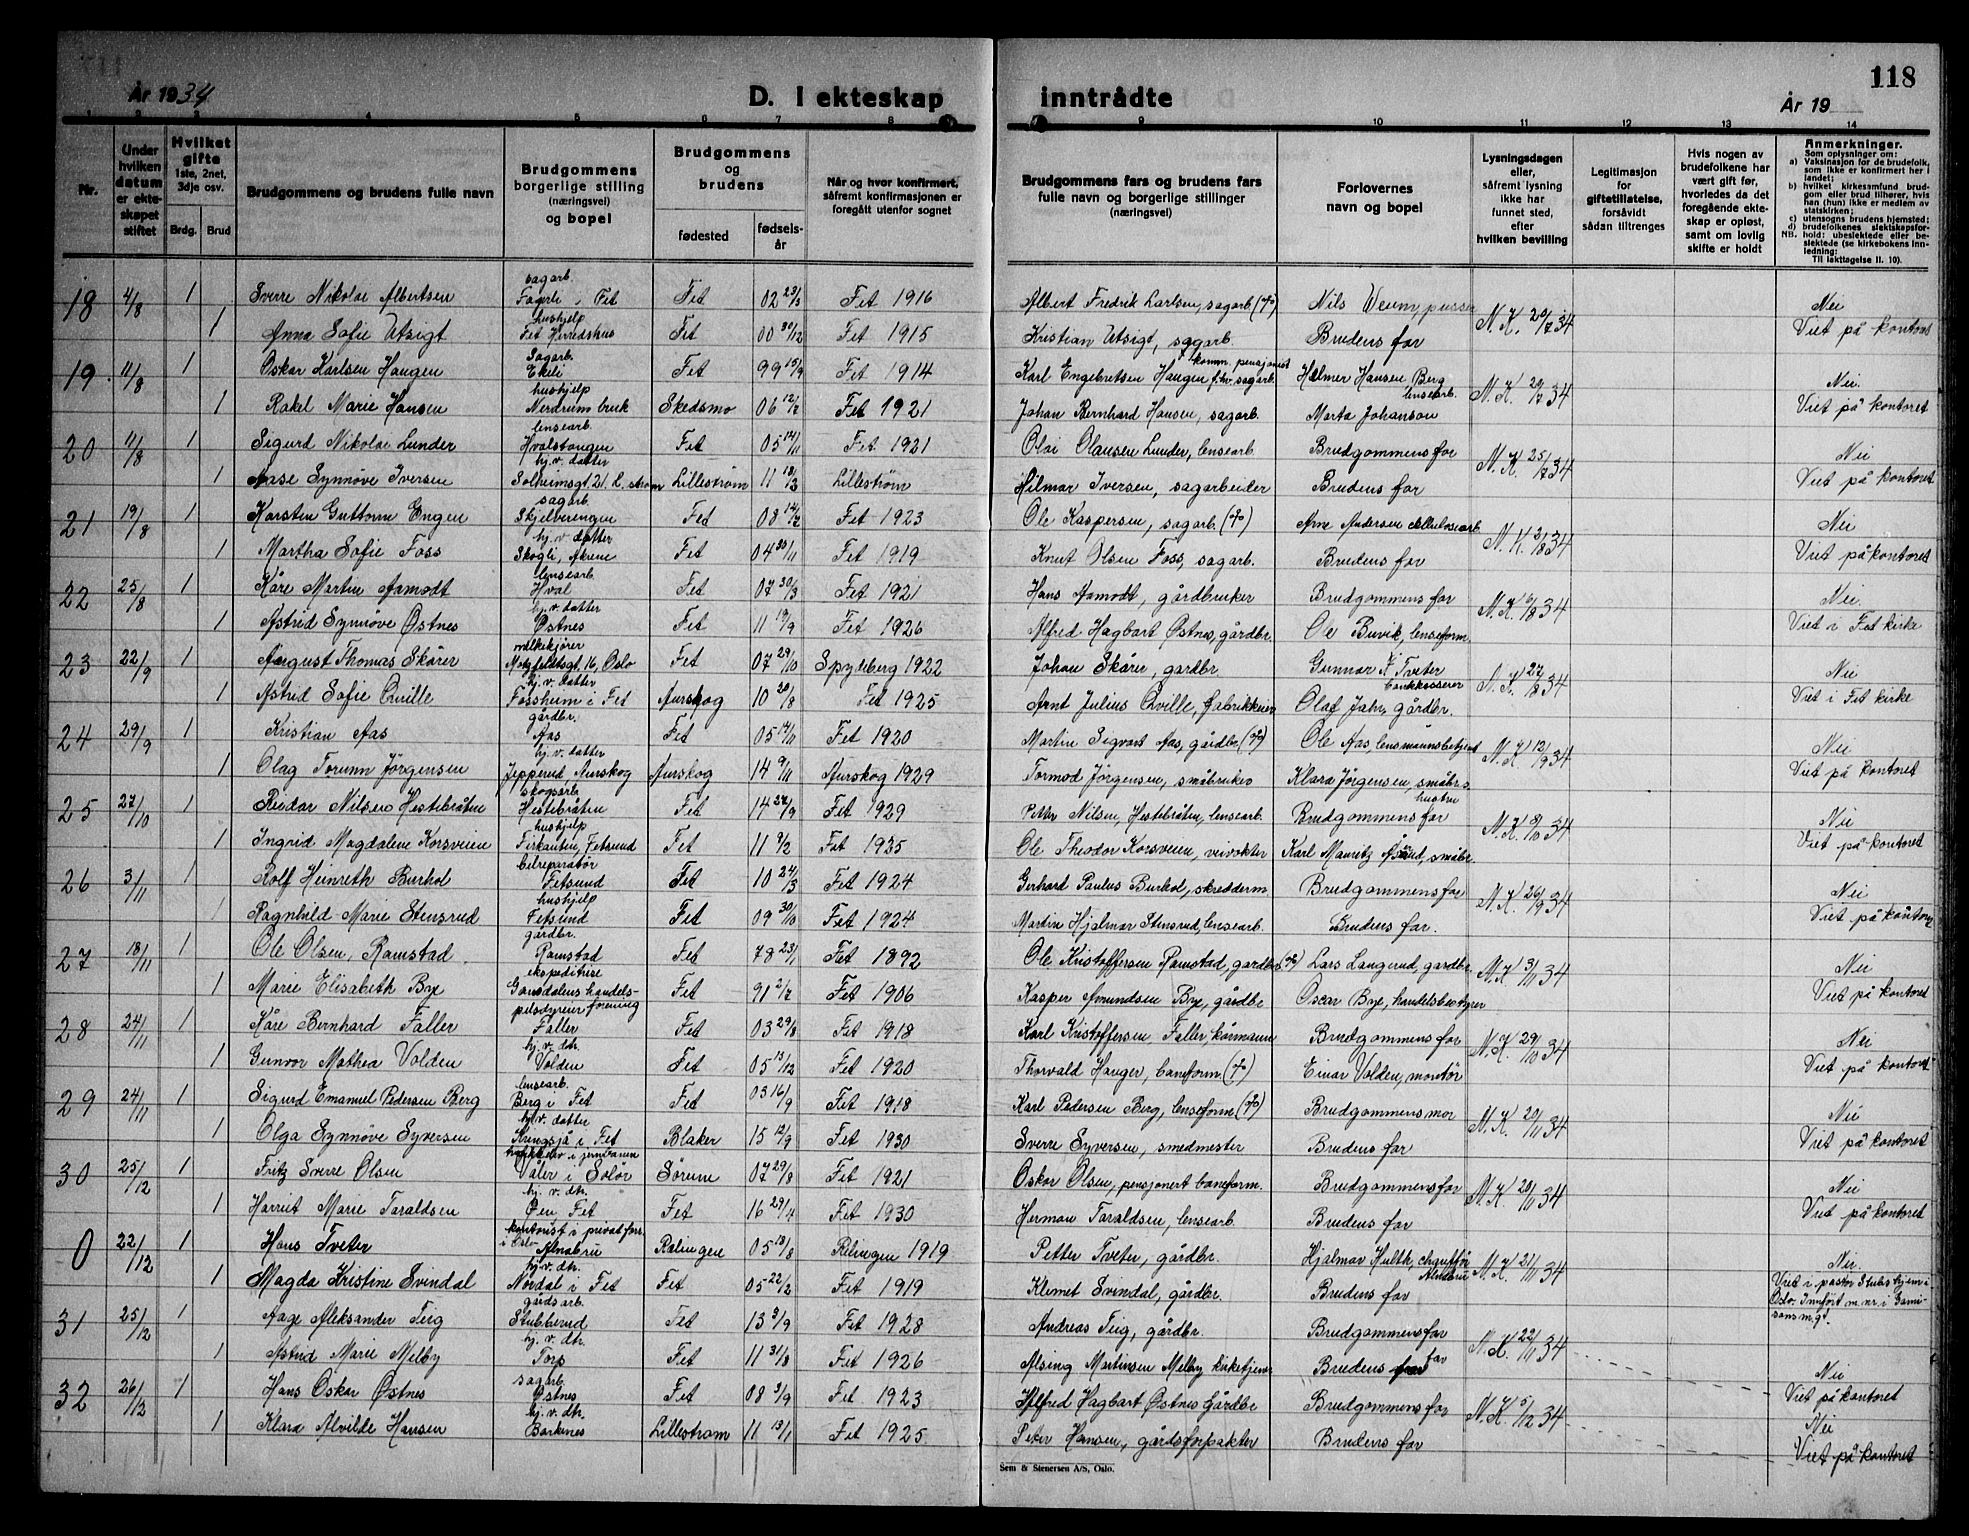 118
År 1934 D. I ekteskap inntrådte År 19
1 2 3 4 5 6 7 8 9 10 11 12 13 14
Nr.
Under hvilken datum er ekteskapet stiftet
Hvilket gifte 1ste, 2net, 3dje osv.
Brdg. Brud
Brudgommens og brudens fulle navn
Brudgommens borgerlige stilling (næringsvei) og bopel
Brudgommens og brudens
fødested
fødselsår
Når og hvor konfirmert, såfremt konfirmasjonen er foregått utenfor sognet
Brudgommens fars og brudens fars fulle navn og borgerlige stillinger (næringsvei)
Forlovernes navn og bopel
Lysningsdagen eller, såfremt lysning ikke har funnet sted, efter hvilken bevilling
Legitimasjon for giftetillatelse, forsåvidt sådan tiltrenges
Hvis nogen av brudefolkene har vært gift før, hvorledes da det foregående ekteskap er opløst, samt om lovlig skifte er holdt
Anmerkninger.
Som oplysninger om:
a) Vaksinasjon for de brudefolk, som ikke er konfirmert her i landet;
b) hvilket kirkesamfund brudgom eller brud tilhører, hvis han (hun) ikke er medlem av statskirken;
c) utensogns brudens hjemsted;
d) brudefolkenes slektskapsforhold: ubeslektede eller beslektede (se kirkebokens innledning:
NB. Til iakttagelse II. 10).
18 4/8 1 Sverre Nikolai Albertsen sagarb. Fagerli, Fet Fet 02 23/3 Fet 1916 Albert Fredrik Larlsen, sagarb. (†) Nils Veum, N.K. 20/7 34 Nei
1 Anna Sofie Utsigt hushjelp Fet Herredshus Fet 00 30/12 Fet 1915 Kristian Utsigt, sagarb. Brudens far Viet på kontoret
19 11/8 1 Oskar Karlsen Haugen Sagarb. Ekeli Fet 99 15/9 Fet 1914 Karl Engebretsen Haugen f.hv. sagarb. komm. pensjonist Hjelmer Hansen, Berg lensearb. N.K. 20/7 34 Nei.
1 Rakel Marie Hansen hushjelp Nerdrum bruk Skedsmo 06 12/7 Fet 1921 Johan Bernhard Hansen, sagarb. Marta Johanson Viet på kontoret
20 11/8 1 Sigurd Nikolai Lunder lensearb. Hvalstangen Fet 05 14/11 Fet 1921 Olai Olausen Lunder, lensearb. Brudgommens far N.K. 25/7 34 Nei
1 Aase Synnøve Iversen hj. v. datter Solheimsgt. 21. L.strøm Lillestrøm 11 18/3 Lillestrøm Hilmar Iversen, sagarbeider Brudens far Viet på kontoret
21 19/8 1 Karsten Guttorm Engen sagarb. Skjelverengen Fed 08 14/2 Fet 1923 Ole Kaspersen, sagarb. (†) Arne Andersen cellulosearb. N.K. 3/8 34 Nei
1 Martha Sofie Foss hj. v. datter Skogli, Akrene Fet 04 30/11 Fet 1919 Knut Olsen Foss, sagarb. Brudens far Viet på kontoret
22 25/8 1 Kåre Martin Aamodt lensearb. Hval Fet 07 30/3 Fet 1921 Hans Aamodt, gårdbruker Brudgommens far N.K. 6/8 34 Nei.
1 Astrid Synnøve Østnes hj. v. datter Østnes Fet 11 19/9 Fet 1926 Alfred Hagbart Østnes, gårdbr. Ole Buvik, lenseform. Viet i Fet kirke
23 22/9 1 August Thomas Skårer melkekjører Motzfeldtsgt. 16, Oslo Fet 07 29/10 Spydeberg 1922 Johan Skårer, gårdbr. Gunnar K. Tveter bankkasserer N.K. 27/8 34 Nei
1 Astrid Sofie Qville hj. v. datter Fossheim i Fet Aurskog 10 20/8 Fet 1925 Arnt Julius Qville, fabrikkeier Olaf Jahr, gårdbr. Viet i Fet kirke
24 29/9 1 Kristian Aas gårdbr. Aas Fet 05 14/11 Fet 1920 Martin Sigvart Aas, gårdbr. (†) Ole Aas, lensmannsbetjent N.K. 12/9 34 Nei
1 Olag Torunn Jörgensen hj. v. datter Jepperud, Aurskog Aurskog 14 9/11 Aurskog 1929 Tormod Jörgensen, småbruker Klara Jörgensen, småbr.s hustru Viet på kontoret
25 27/10 1 Reidar Nilsen Hestebråten skogsarb. Hestebråten Fet 14 27/9 Fet 1929 Petter Nilsen, Hestebråten, lensearb. Brudgommens far N.K. 8/10 34 Nei
1 Ingrid Magdalene Korsveien hushjelp Firkanten, Fetsund Fet 11 9/2 Fet 1925 Ole Theodor Korsveien, veivokter Karl Mauritz Åsund, småbr. Viet på kontoret
26 3/11 1 Rolf Heinreth Burhol bilreparatør Fetsund Fet 10 24/3 Fet 1924 Gerhard Paulus Burhol, skredderm. Brudgommens far N.K. 26/9 34 Nei
1 Ragnhild Marie Stensrud hushjelp Fetsund Fet 09 30/10 Fet 1924 Martin Hjalmar Stensrud, lensearb. Brudens far. Viet på kontoret
27 18/11 1 Ole Olsen, Ramstad gårdbr. Ramstad Fet 78 23/1 Fet 1892 Ole Kristoffersen Ramstad, gårdbr. (†) Lars Langerud, gårdbr. N.K. 3/11 34 Nei
1 Marie Elisabeth Bye ekspeditrise handelsforening Fet 91 2/7 Fet 1906 Kasper Amundsen Bye, gårdbr. Oscar Bye, handelsbestyrer Viet på kontoret
28 24/11 1 Kåre Bernhard Faller pelsdyreier Faller Fet 03 29/8 Fet 1918 Karl Kristoffersen Faller, kårmann Brudgommens far N.K. 29/10 34 Nei
1 Gunvor Mathea Volden hj. v. dtr. Volden Fet 05 13/12 Fet 1920 Thorvald Hauger, baneform. (†) Einar Volden, montör Viet på kontoret
29 24/11 1 Sigurd Emanuel Pedersen Berg lensearb. Berg i Fet Fet 03 16/9 Fet 1918 Karl Pedersen Berg, lenseform. (†) Brudgommens mor N.K. 20/11 34 Nei
1 Olga Synnøve Syversen hj. v. datter Kringsjå i Fet Blaker 15 12/9 Fet 1930 Sverre Syversen, smedmester Brudens far Viet på kontoret
30 25/12 1 Fritz Sverre Olsen i jernbanen Våler i Solør Sørum 07 29/8 Fet 1921 Oskar Olsen, pensjonert baneform. Brudgommens far N.K. 20/11 34 Nei
1 Harriet Marie Taraldsen hj. v. dtr. Øen Fet Fet 16 29/4 Fet 1930 Herman Taraldsen, lensearb. Brudens far Viet på kontoret
0 22/12 1 Hans Tveter kontorist i privat forr. i Oslo Alnabru Rælingen 05 13/8 Rælingen 1919 Petter Tveter, gårdbr. Hjalmar Hulth, chauffør Alnabru N.K. 21/11 34 Nei.
1 Magda Kristine Svindal hj. v. dtr. Nordal i Fet Fet 05 22/2 Fet 1919 Klemet Svindal, gårdbr. Brudens far Viet i pastor Stubs hjem i Oslo. Innført m. nr. i Garnisonsmgt.
31 25/12 1 Aage Aleksander Teig gårdsarb. Stubberud Fet 13 3/9 Fet 1928 Andreas Teig, gårdbr. Brudgommens far N.K. 22/11 34
1 Astrid Marie Melby hj. v. dtr. Torp Fet 11 31/8 Fet 1926 Alsing Martinsen Melby kirketjener Brudens far Nei
32 26/12 1 Hans Oskar Østnes sagarb. Østnes Fet 08 3/9 Fet 1923 Alfred Hagbart Østnes Gårdbr. Brudgommens far N.K. 5/12 34 Viet på kontoret
1 Klara Alvilde Hansen hj. v. dtr. Barkenes Lillestrøm 11 13/1 Fet 1925 Peter Hansen, gårdsforpakter Brudens far Nei
Viet på kontoret
Sem & Stenersen A/S, Oslo.